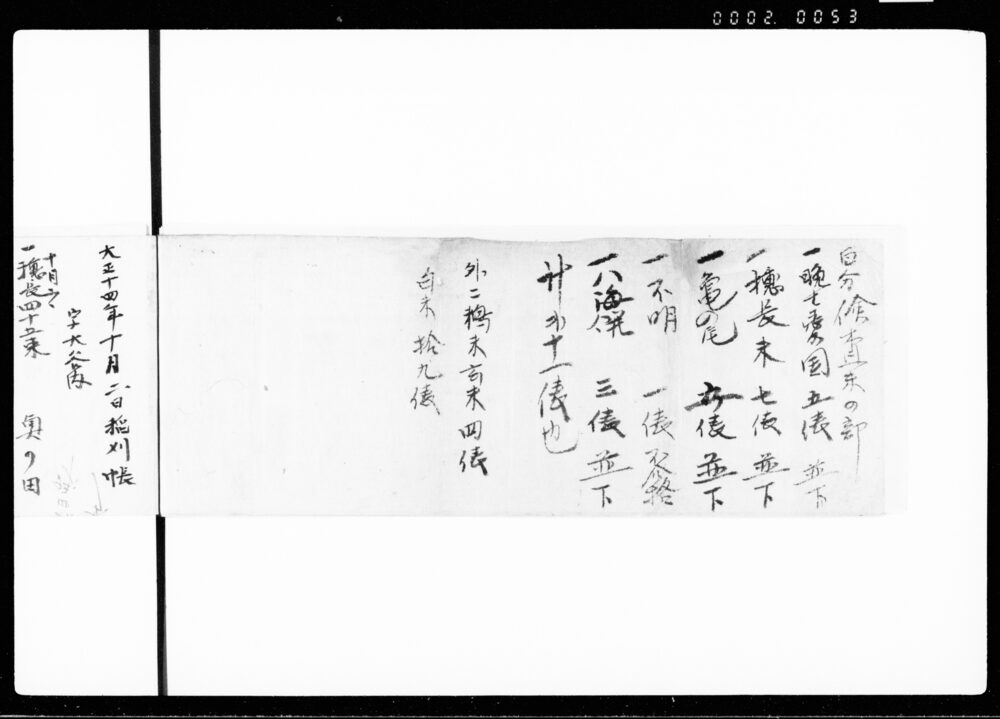 0002. 0053
自分検査米の部
一晩生愛国 五俵 並下
一穂長米 七俵 並下
一亀の尾 六俵 並下
一不明 一俵 不合格
一八海 三俵 並下
計弐十一俵也
外ニ橋米玄米四俵
白米拾九俵
大正十四年十月二日稲刈帳
字大谷
十月二日
一穂長四十五束 奥の田